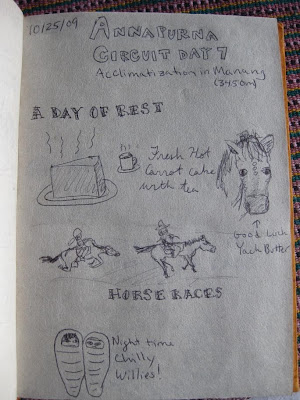 10/25/09
ANNAPURNA
CIRCUIT DAY 7
Acclimatization in Manang
(3450m)
A DAY OF REST
Fresh Hot
Carrot cake
with tea
↑
Good Luck
Yack Butter
HORSE RACES
Night time
Chilly
Willies!